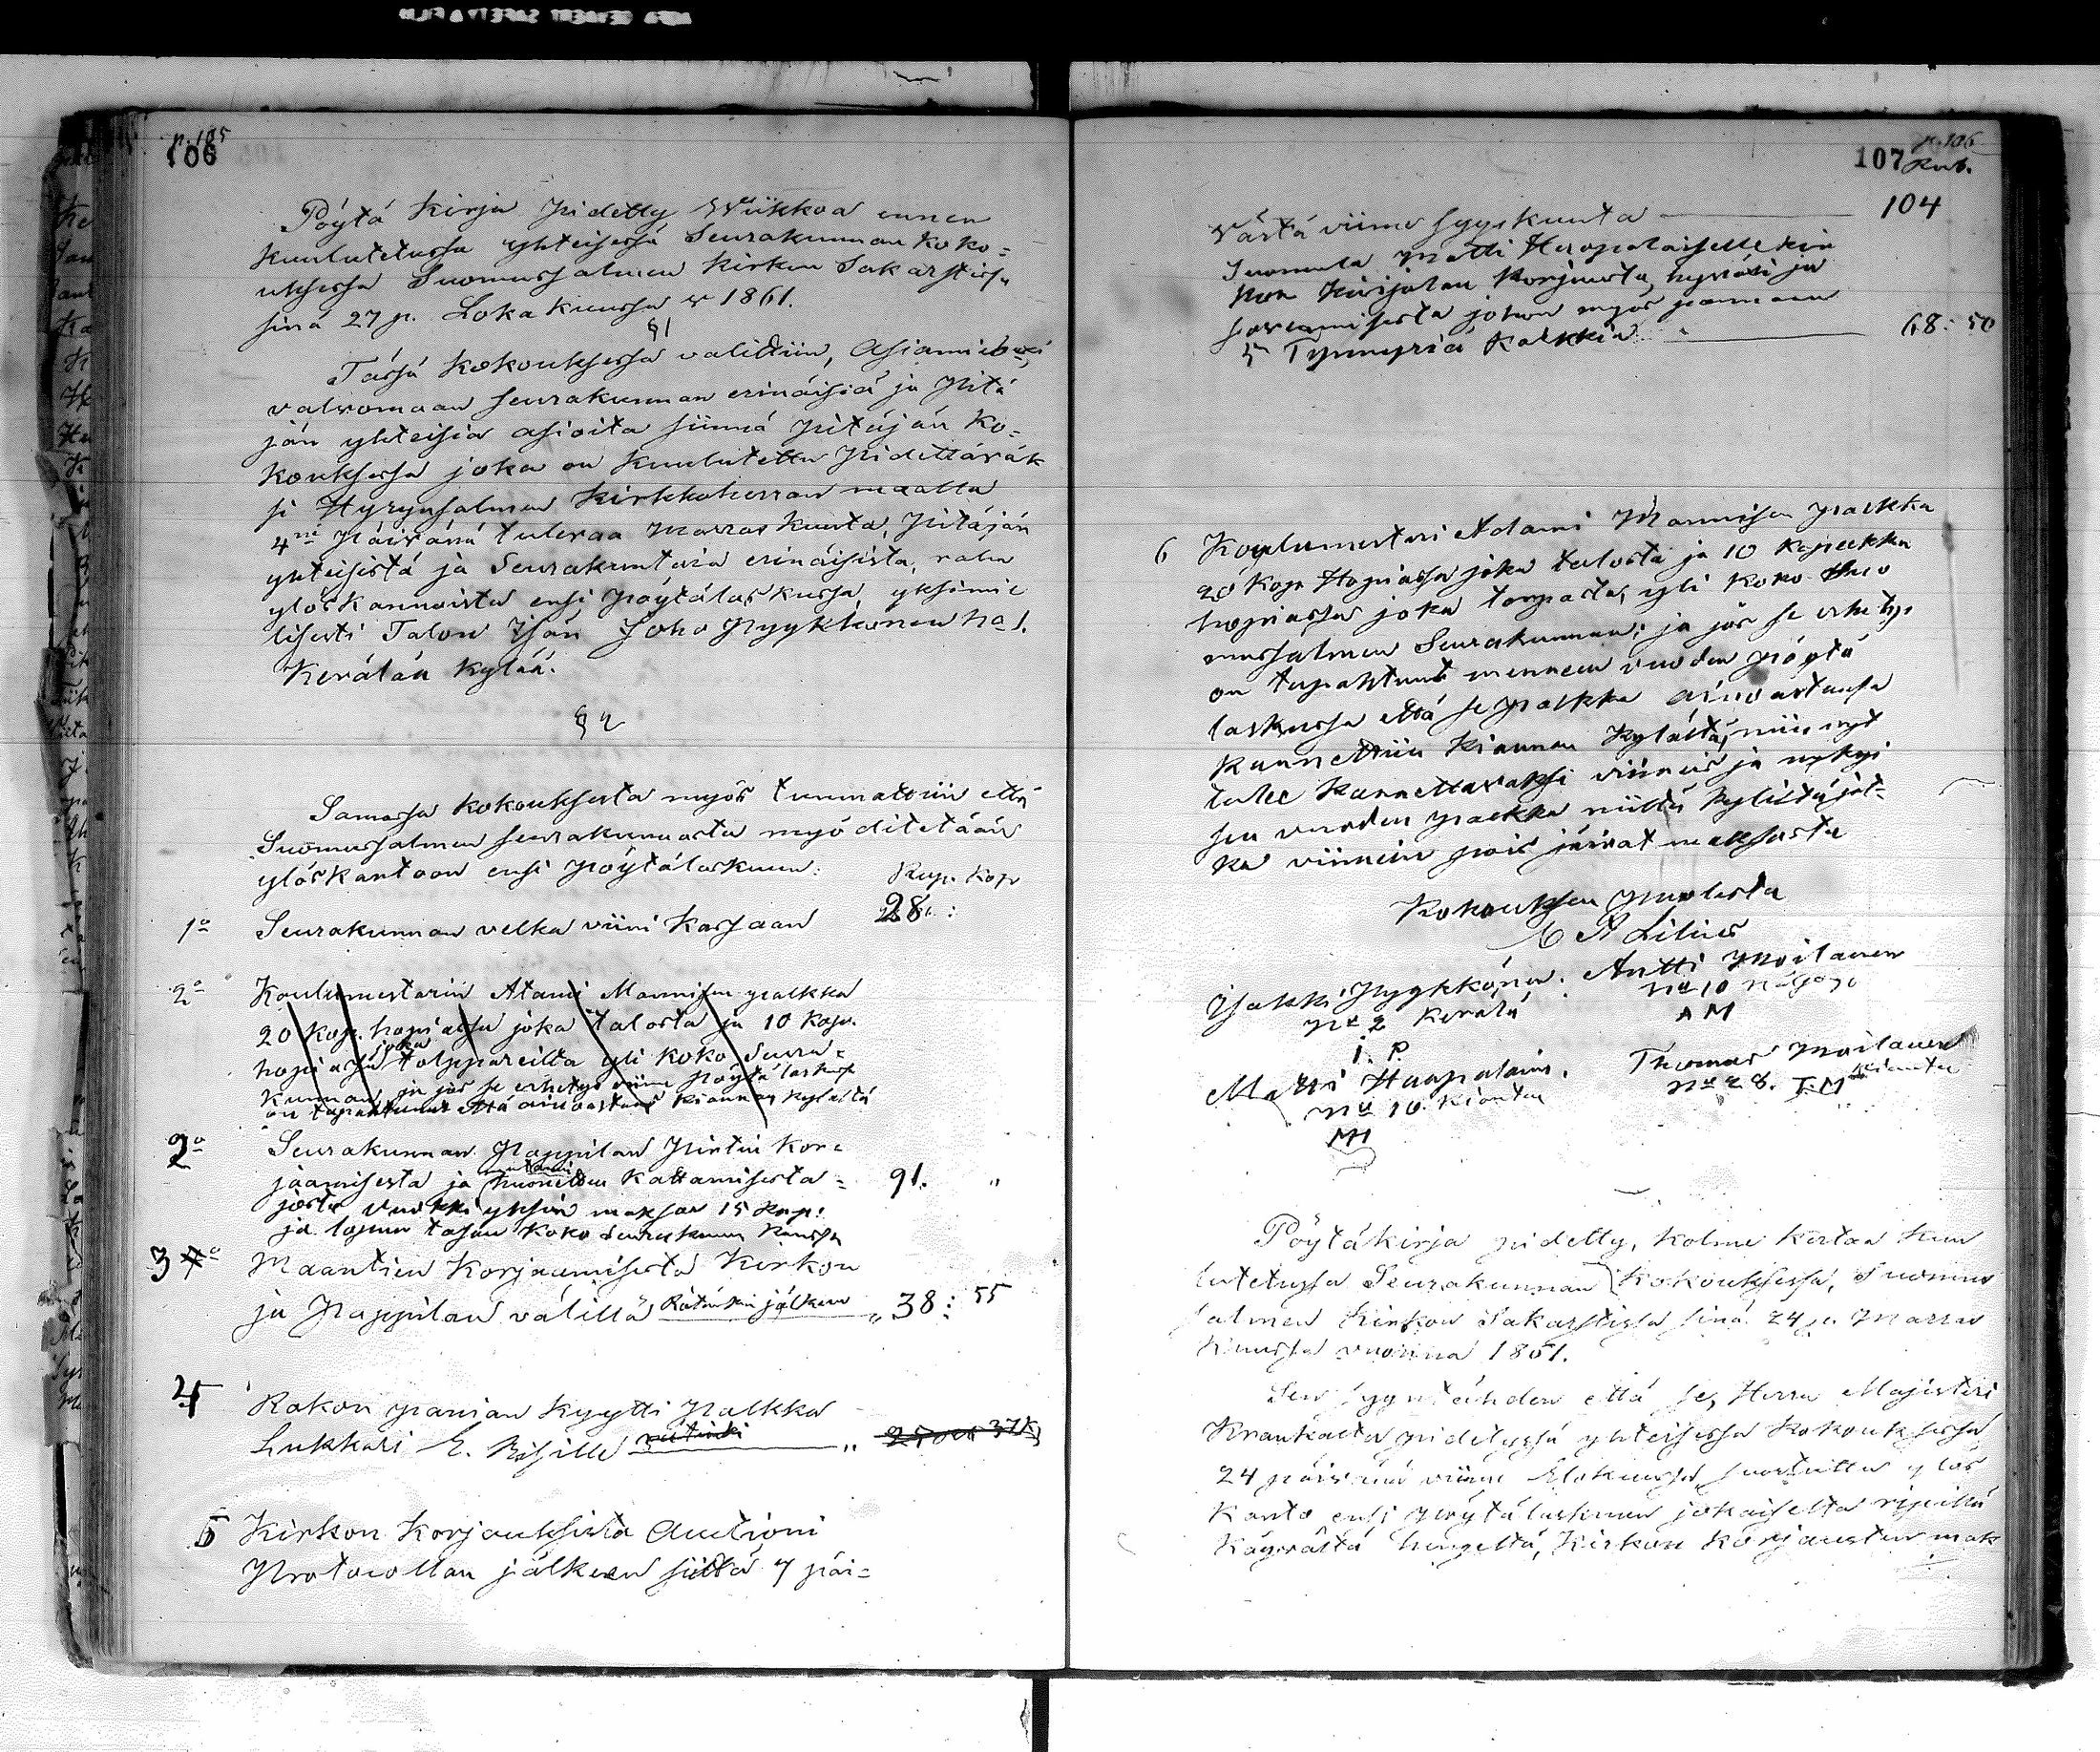 p. 105
106
Pöytä Kirja pidetty Wiikkoa ennen
kuulutetussa yhteisessä Seurakunnan koko=
uksessa Suomussalmen Kirkon Sakastissa
sinä 27 p. Lokakuussa v 1861.
§1
Tässä kokouksessa valittiin, Asiamieheksi
valvomaan seurakunnan erinäisiä ja pitä
jän yhteisiä asioita siinnä pitäjän Ko=
kouksessa joka on kuulutettu pidettäväk
si Hyrynsalmen Kirkkoherran maalla
4nä päivänä tulevaa Marraskuuta, pitäjän
yhteisistä ja Seurakuntain erinäisistä, raha
ylöskannoista ensi pöytälaskussa, yksimie
lisesti Talon Isän Joho Pyykkönen No 1.
Kerälän kylää.
§ 2
Samassa kokouksesta myös tunnattiin että
Suomussalmen seurakunnasta myöditetään
ylöskantoon ensi pöytälaskuun:
Rup. Kop
1o Seurakunnan velka viini Kassaan 28 :
2o Koulumestarin Atami Mannisen palkka
20 Kop. hopiassa joka talosta ja 10 Kop.
joka
hopiassa torppareilta yli koko Seura=
kunnan, ja jos se erhetys viime pöytälaskussa
on tapahtunut että ainoastansa Kiannan kylältä
2o Seurakunnan Pappilan Pirtin Kor=
muutamain
jaamisesta ja huonetten Kattamisesta = 91. "
josta Vuokki yksin maksaa 15 Rup:
ja loput tasan koko Seurakunnan kanssa
3o Maantien Korjaamisesta Kirkon
ja Pappilan välillä Rätinkin jälkeen " 38: 55
4 Rokon panian kyyti palkka
Lukkari E. Rosille " 25
5 Kirkon Korjauksista Auctioni
Protocollan jälkeen siitä 7 päi=
107 p. 106
Rub.
västä viime syyskuuta 104
Suomula Matti Haapalaiselle kin
kon Kirjolan Korjuusta,
johon myös pannaan
5 Tynnyriä Kalkkia 68: 50
6 Koulumestari Adami Mannisen palkka
20 Kop Hopiassa joka talosta ja 10 Kopeekka
hopiassa joka torpasta, yli koko Suo
mussalmen Seurakunnan; ja jos se erhetys
on tapahtunut mennen vuoden pöytä
laskussa että se palkka ainoastansa
kannettiin Kiannan Kylältä, niin nyt
tulee kannettavaksi viimeis ja nykyi
sen vuoden palkka niiltä kyliltä jot=
ka viimein pois jäivät maksusta
Kokouksen puolesta
C A Lilius
Isakki Pyykkönen. Antti Moilanen
No 2 Kerälä No 10 Näljän
I. P. A M
Matti Haapalain. Thomas Moilanen
No 10. Kianta No 28. T.M Kianta
MH
Pöytäkirja pidetty, kolme kertaa kuu
lutetussa Seurakunnan Kokouksessa, Suomus
salmen Kirkon Sakastissa sinä 24 p. Marras
kuussa vuonna 1861.
Sen syyn tähden että se, Herra Majisteri
Krankalta pidetyssä yhteisessä Kokouksessa
24 päivänä viime Elokuussa, suostuttu ylös
kanto ensi pöytälaskuun jokaiselta ripillä
käyvältä hengeltä, Kirkon Korjausten mak